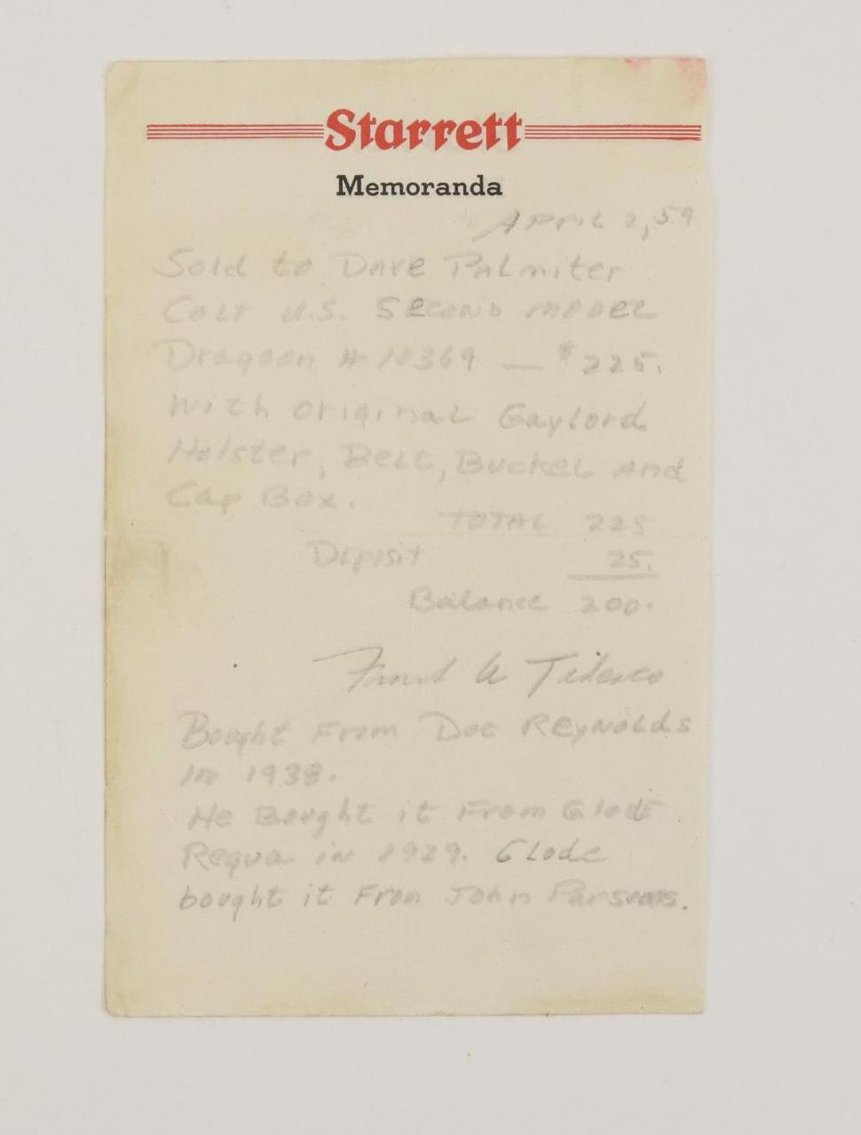 Starrett
Memoranda
April 2, 59
Sold to Dave Palmiter
Colt U.S. Second Model
Dragoon # 10369 — $225.
With original Gaylord
Holster, Belt, Buckel and
Cap Box.
TOTAL 225
Deposit 25.
Balance 200.
Frank A Tedesco
Bought From Doc Reynolds
in 1938.
He Bought it From Glode
Requa in 1929. Glode
bought it From John Parsons.